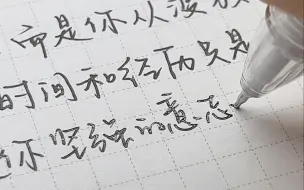 而是你从没
时间和经历只是
你坚强的意志